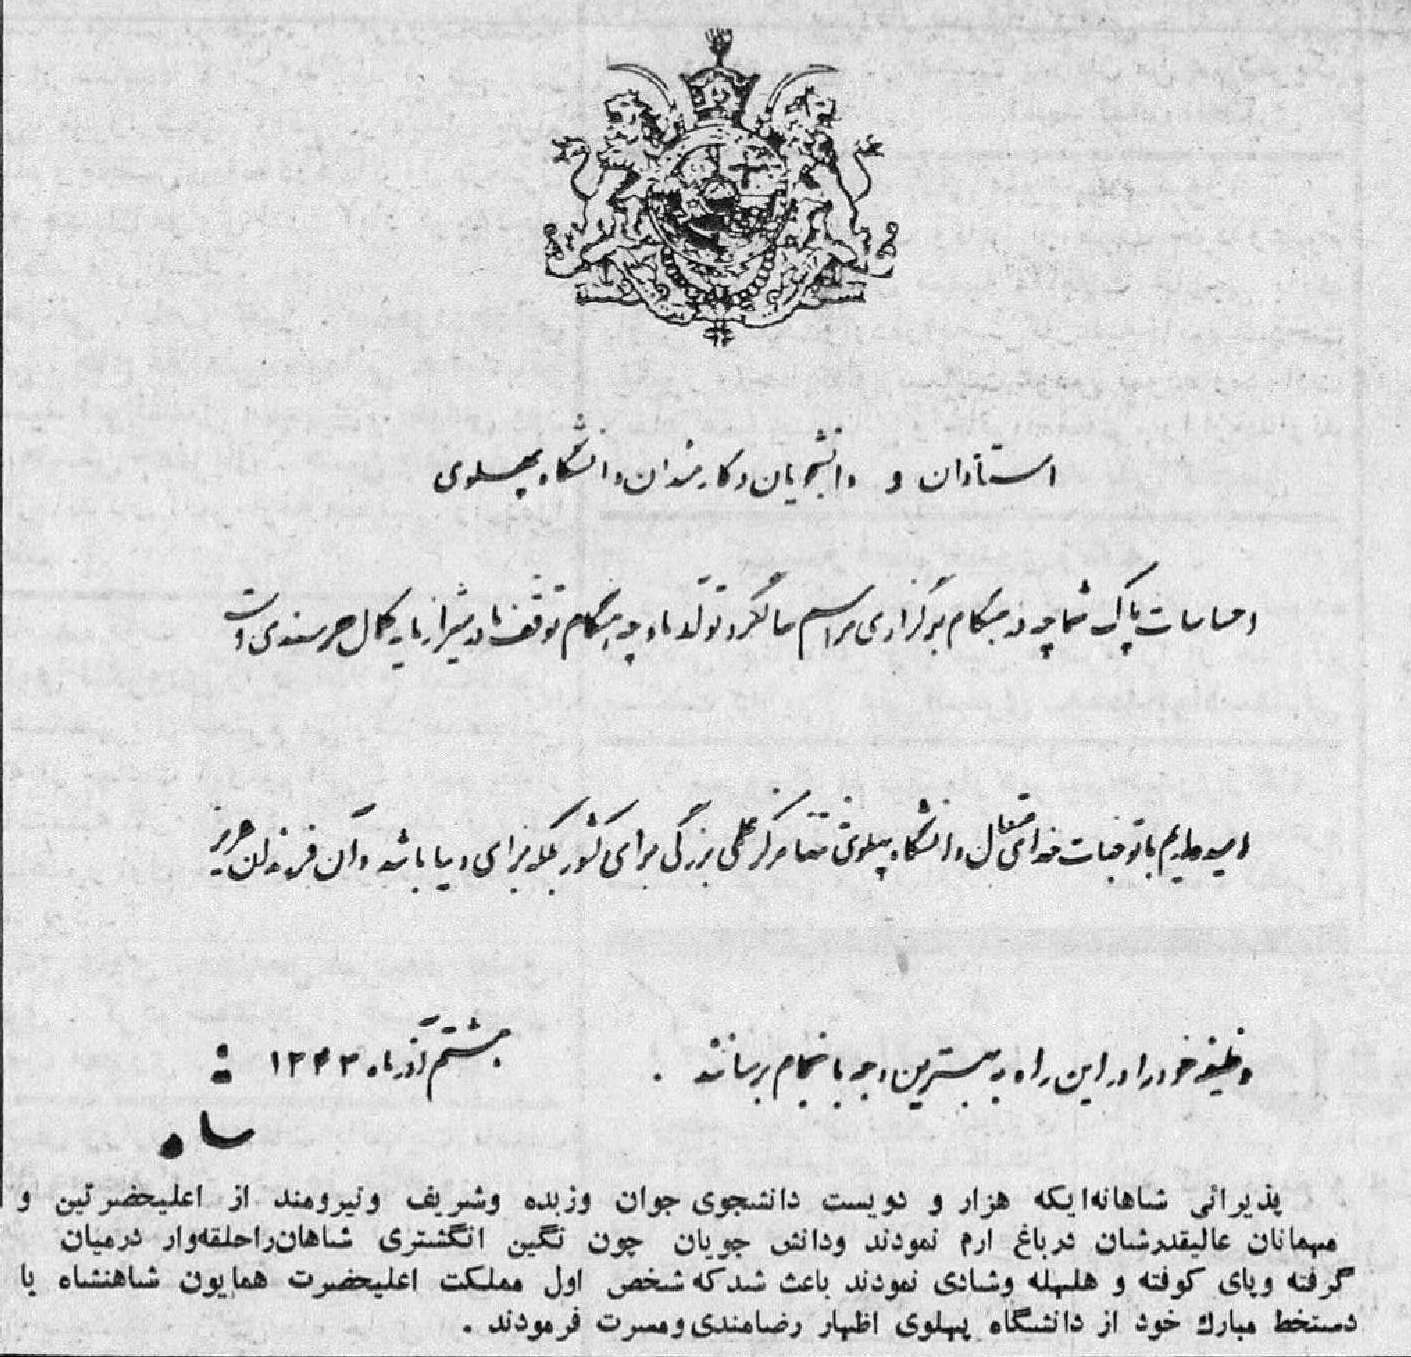 استادان و دانشجویان و کارمندان دانشگاه پهلوی
احساسات پاک شما چه در هنگام برگزاری مراسم سالگرد تولد ما و چه هنگام توقف ما در شیراز مایه کمال خرسندی است
امید داریم با توجهات خدای متعال دانشگاه پهلوی مرکز علمی بزرگی برای کشور بلکه برای دنیا باشد و آن فرزندان عزیز
وظیفه خود را در این راه به بهترین وجه بانجام برسانند . هشتم آذر ماه ۱۳۴۳
شاه
پذیرائی شاهانه‌ایکه هزار و دویست دانشجوی جوان وزبده وشریف ونیرومند از اعلیحضرتین و
میهمانان عالیقدرشان درباغ ارم نمودند ودانش جویان چون نگین انگشتری شاهان‌راحلقه‌وار درمیان
گرفته وپای کوفته و هلهله وشادی نمودند باعث شد که شخص اول مملکت اعلیحضرت همایون شاهنشاه با
دستخط مبارك خود از دانشگاه پهلوی اظهار رضامندی ومسرت فرمودند .